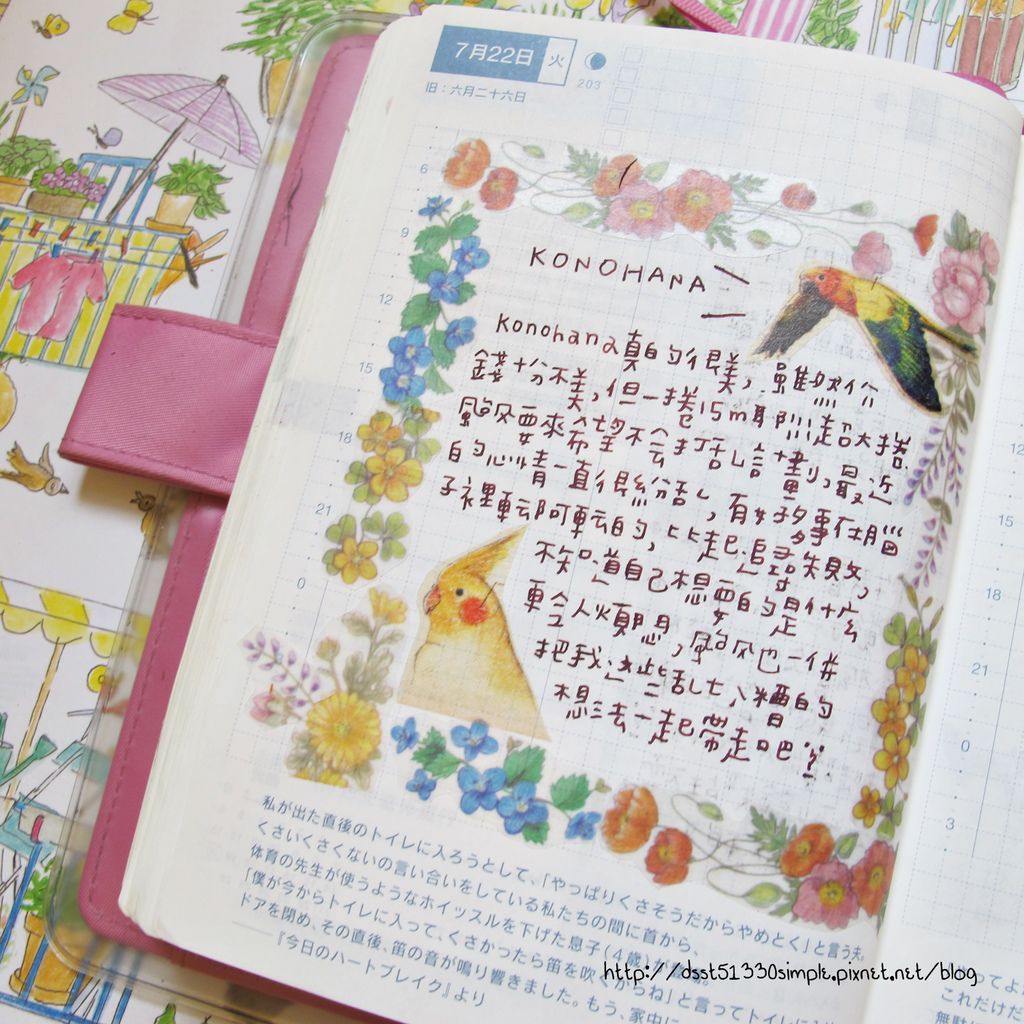 7月22日 火
203
旧：六月二十六日
6
9
12
15
18
21
0
KONOHANA
Konohana真的很美，雖然价
錢十分不美，但一捲15m耶!!!超大捲
颱风要來希望不会打乱計劃，最近
的心情一直很紛乱，有好多事在腦
子裡轉阿轉的，比起追尋失敗，
不知道自己想要的是什麼
更令人煩惱，颱风也一併
把我這些乱七八糟的
想法一起帶走吧！！
私が出た直後のトイレに入ろうとして、「やっぱりくさそうだからやめとく」と言う夫。
くさいくさくないの言い合いをしている私たちの間に首から、
体育の先生が使うようなホイッスルを下げた息子（4歳）が
「僕が今からトイレに入って、くさかったら笛を吹くからね」と言ってトイレに
ドアを閉め、その直後、笛の音が鳴り響きました。もう、家中に
──『今日のハートブレイク』より
12
15
18
21
0
3
これだけだ
http://dsst51330simple.pixnet.net/blog